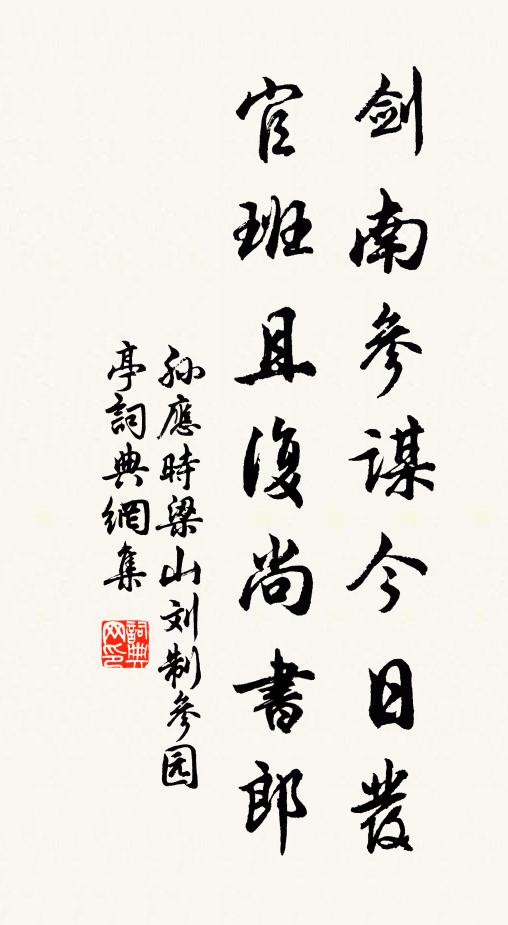 剑南參谋今日發
官班且復尚書郎
孙應時梁山刘制參园
亭詞典網集
詞典网印